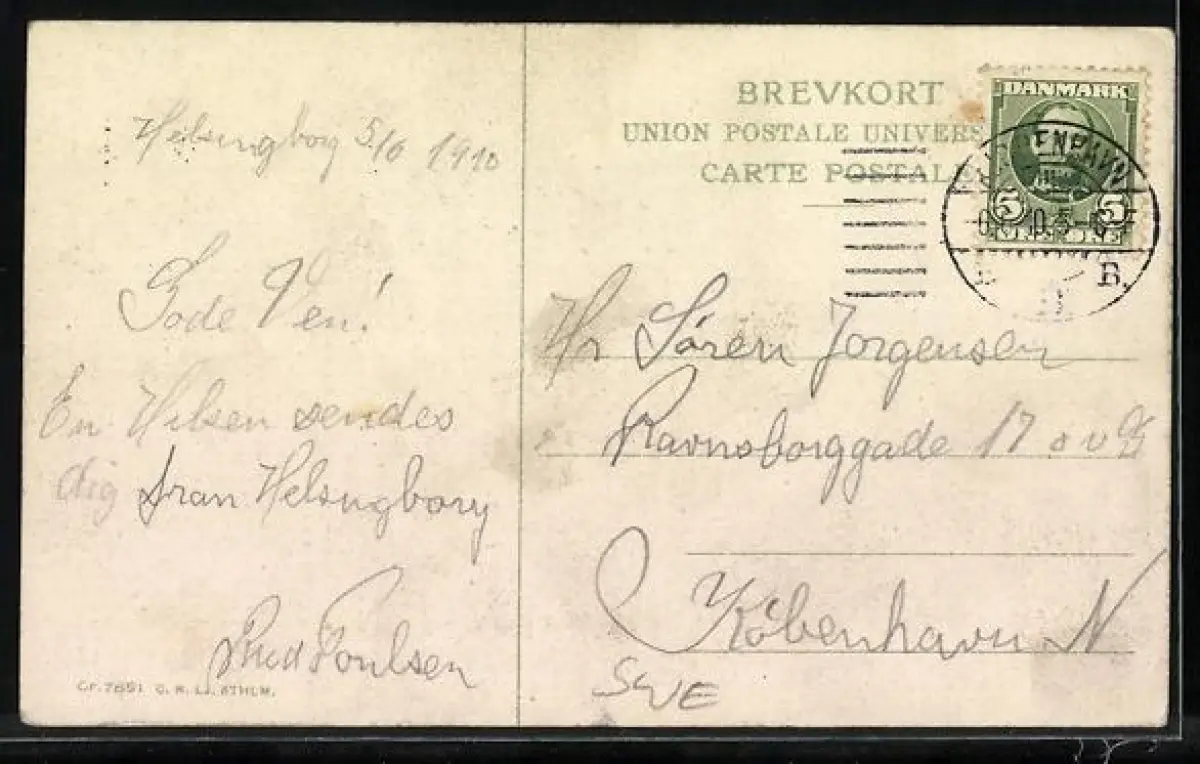 Helsingborg 5/6 1910
Gode Ven!
En Hilsen sendes
dig fran Helsingborg
Poulsen
C.R.L. STHLM.
BREVKORT
UNION POSTALE UNIVERS
CARTE POSTALE
DANMARK
5 5
ØRE
B.
Hr Sören Jorgensen
Ravnsborggade 17
København N
SWE